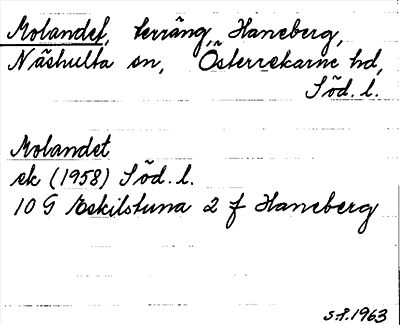 Molandet, terräng, Haneberg,
Näshulta sn, Österrekarne hd,
Söd. l.
Molandet
ek (1958) Söd. l.
10 G Eskilstuna 2 f Haneberg
S.P. 1963